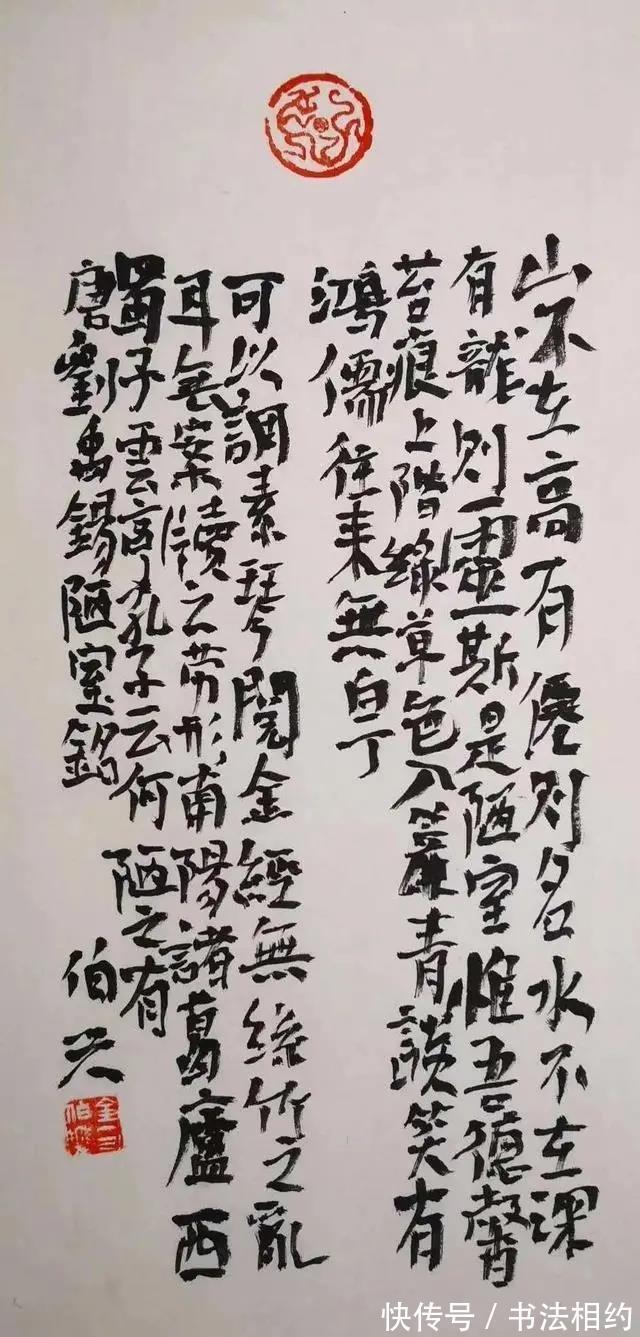 山不在高有僊則名水不在深
有龍則靈斯是陋室惟吾德馨
苔痕上階綠草色入簾青談笑有
鴻儒往来無白丁
可以調素琴閱金經無絲竹之亂
耳無案牘之劳形南陽諸葛廬西
蜀子雲亭孔子云何陋之有
唐劉禹錫陋室銘
伯
快传号 / 书法相约